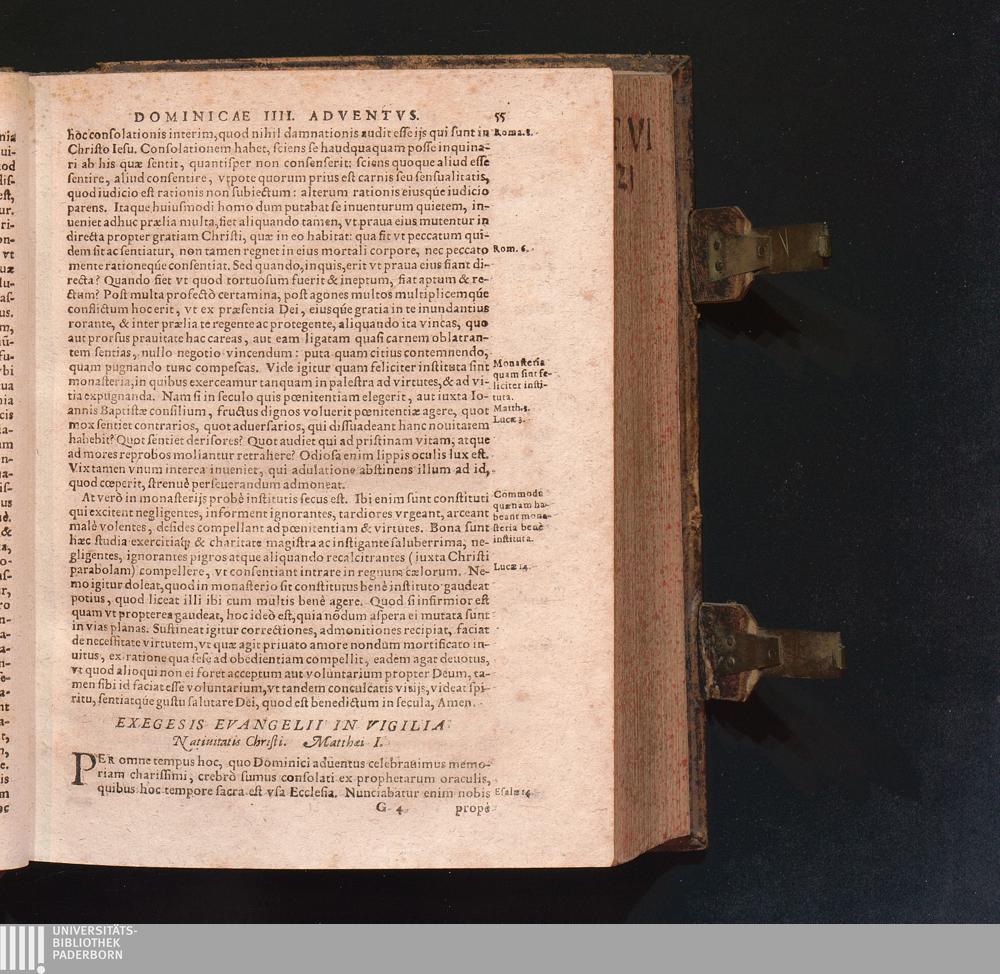 DOMINICAE IIII. ADVENTVS. 55
hoc consolationis interim, quod nihil damnationis audit esse ijs qui sunt in
Christo Iesu. Consolationem habet, sciens se haudquaquam posse inquina-
ri ab his quæ sentit, quantisper non consenserit: sciens quoque aliud esse
sentire, aliud consentire, vtpote quorum prius est carnis seu sensualitatis,
quod iudicio est rationis non subiectum: alterum rationis eiusque iudicio
parens. Itaque huiusmodi homo dum putabat se inuenturum quietem, in-
ueniet adhuc prælia multa, fiet aliquando tamen, vt praua eius mutentur in
directa propter gratiam Christi, quæ in eo habitat: qua fit vt peccatum qui-
dem sit ac sentiatur, non tamen regnet in eius mortali corpore, nec peccato
mente rationeque consentiat. Sed quando, inquis, erit vt praua eius fiant di-
recta? Quando fiet vt quod tortuosum fuerit & ineptum, fiat aptum & re-
ctum? Post multa profectò certamina, post agones multos multiplicemque
conflictum hoc erit, vt ex præsentia Dei, eiusque gratia in te inundantius
rorante, & inter prælia te regente ac protegente, aliquando ita vincas, quo
aut prorsus prauitate hac careas, aut eam ligatam quasi carnem oblatran-
tem sentias, nullo negotio vincendum: puta quam citius contemnendo,
quam pugnando tunc compescas. Vide igitur quam feliciter instituta sint
monasteria, in quibus exerceamur tanquam in palestra ad virtutes, & ad vi-
tia expugnanda. Nam si in seculo quis pœnitentiam elegerit, aut iuxta Io-
annis Baptistæ consilium, fructus dignos voluerit pœnitentiæ agere, quot
mox sentiet contrarios, quot aduersarios, qui dissuadeant hanc nouitatem
habebit? Quot sentiet derisores? Quot audiet qui ad pristinam vitam, atque
ad mores reprobos moliantur retrahere? Odiosa enim lippis oculis lux est.
Vix tamen vnum interea inueniet, qui adulatione abstinens illum ad id,
quod cœperit, strenuè perseuerandum admoneat.
At verò in monasterijs probè institutis secus est. Ibi enim sunt constituti
qui excitent negligentes, informent ignorantes, tardiores vrgeant, arceant
malè volentes, desides compellant ad pœnitentiam & virtutes. Bona sunt
hæc studia exercitiaq; & charitate magistra ac instigante saluberrima, ne-
gligentes, ignorantes pigros atque aliquando recalcitrantes (iuxta Christi
parabolam) compellere, vt consentiant intrare in regnum cælorum. Ne-
mo igitur doleat, quod in monasterio sit constitutus benè instituto gaudeat
potius, quod liceat illi ibi cum multis benè agere. Quod si infirmior est
quam vt propterea gaudeat, hoc ideò est, quia nõdum aspera ei mutata sunt
in vias planas. Sustineat igitur correctiones, admonitiones recipiat, faciat
de necessitate virtutem, vt quæ agit priuato amore nondum mortificato in-
uitus, ex ratione qua sese ad obedientiam compellit, eadem agat deuotus,
vt quod alioqui non ei foret acceptum aut voluntarium propter Deum, ta-
men sibi id faciat esse voluntarium, vt tandem conculcatis vitijs, videat spi-
ritu, sentiatque gustu salutare Dei, quod est benedictum in secula, Amen.
Roma. 8.
Rom. 6.
Monasteria
quam sint fe-
liciter insti-
tuta.
Matth. 3.
Lucæ 3.
Commode
quænam ha-
beant mona-
steria benè
instituta.
Lucæ 14.
EXEGESIS EVANGELII IN VIGILIA
Natiuitatis Christi. Matthæi I.
PER omne tempus hoc, quo Dominici aduentus celebrauimus memo-
riam charissimi, crebrò sumus consolati ex prophetarum oraculis,
quibus hoc tempore sacra est vsa Ecclesia. Nunciabatur enim nobis
Esaiæ 14
G 4 propè
VI
21
UNIVERSITÄTS-
BIBLIOTHEK
PADERBORN